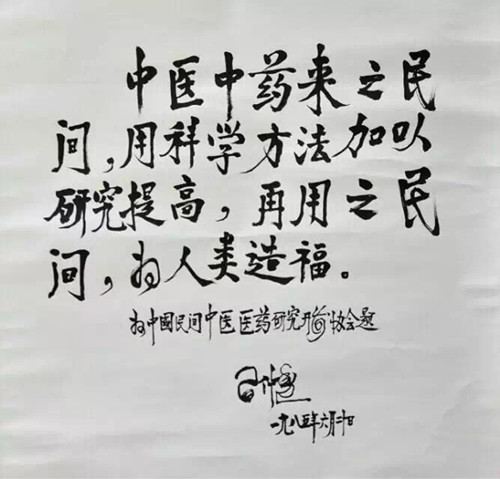 中医中药来之民
间，用科学方法加以
研究提高，再用之民
间，为人类造福。
为中國民间中医医药研究开发协会题
一九八五年六月廿日